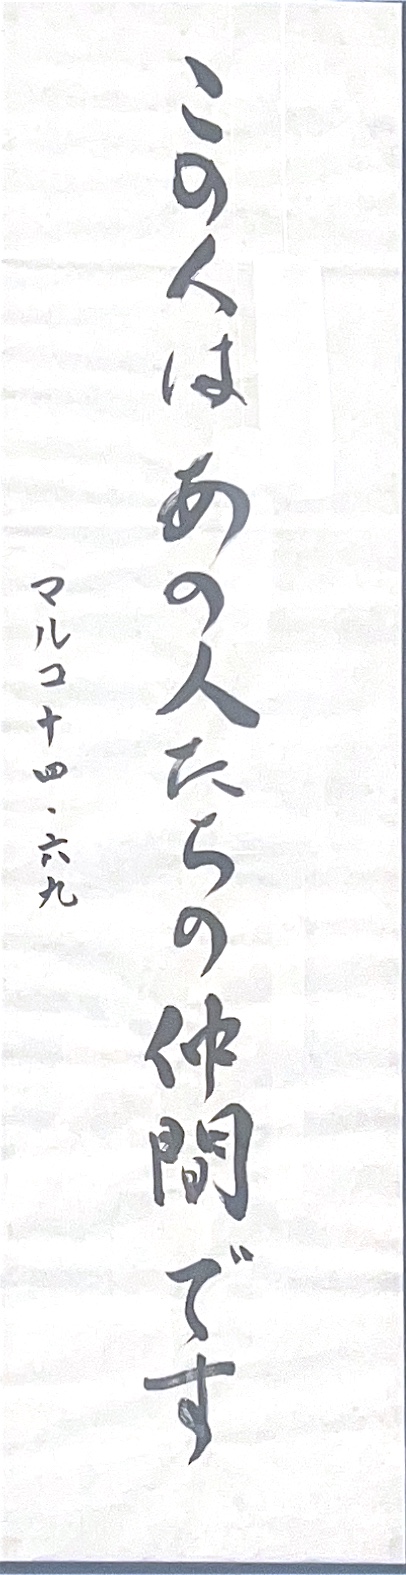 この人はあの人たちの仲間です
マルコ十四・六九